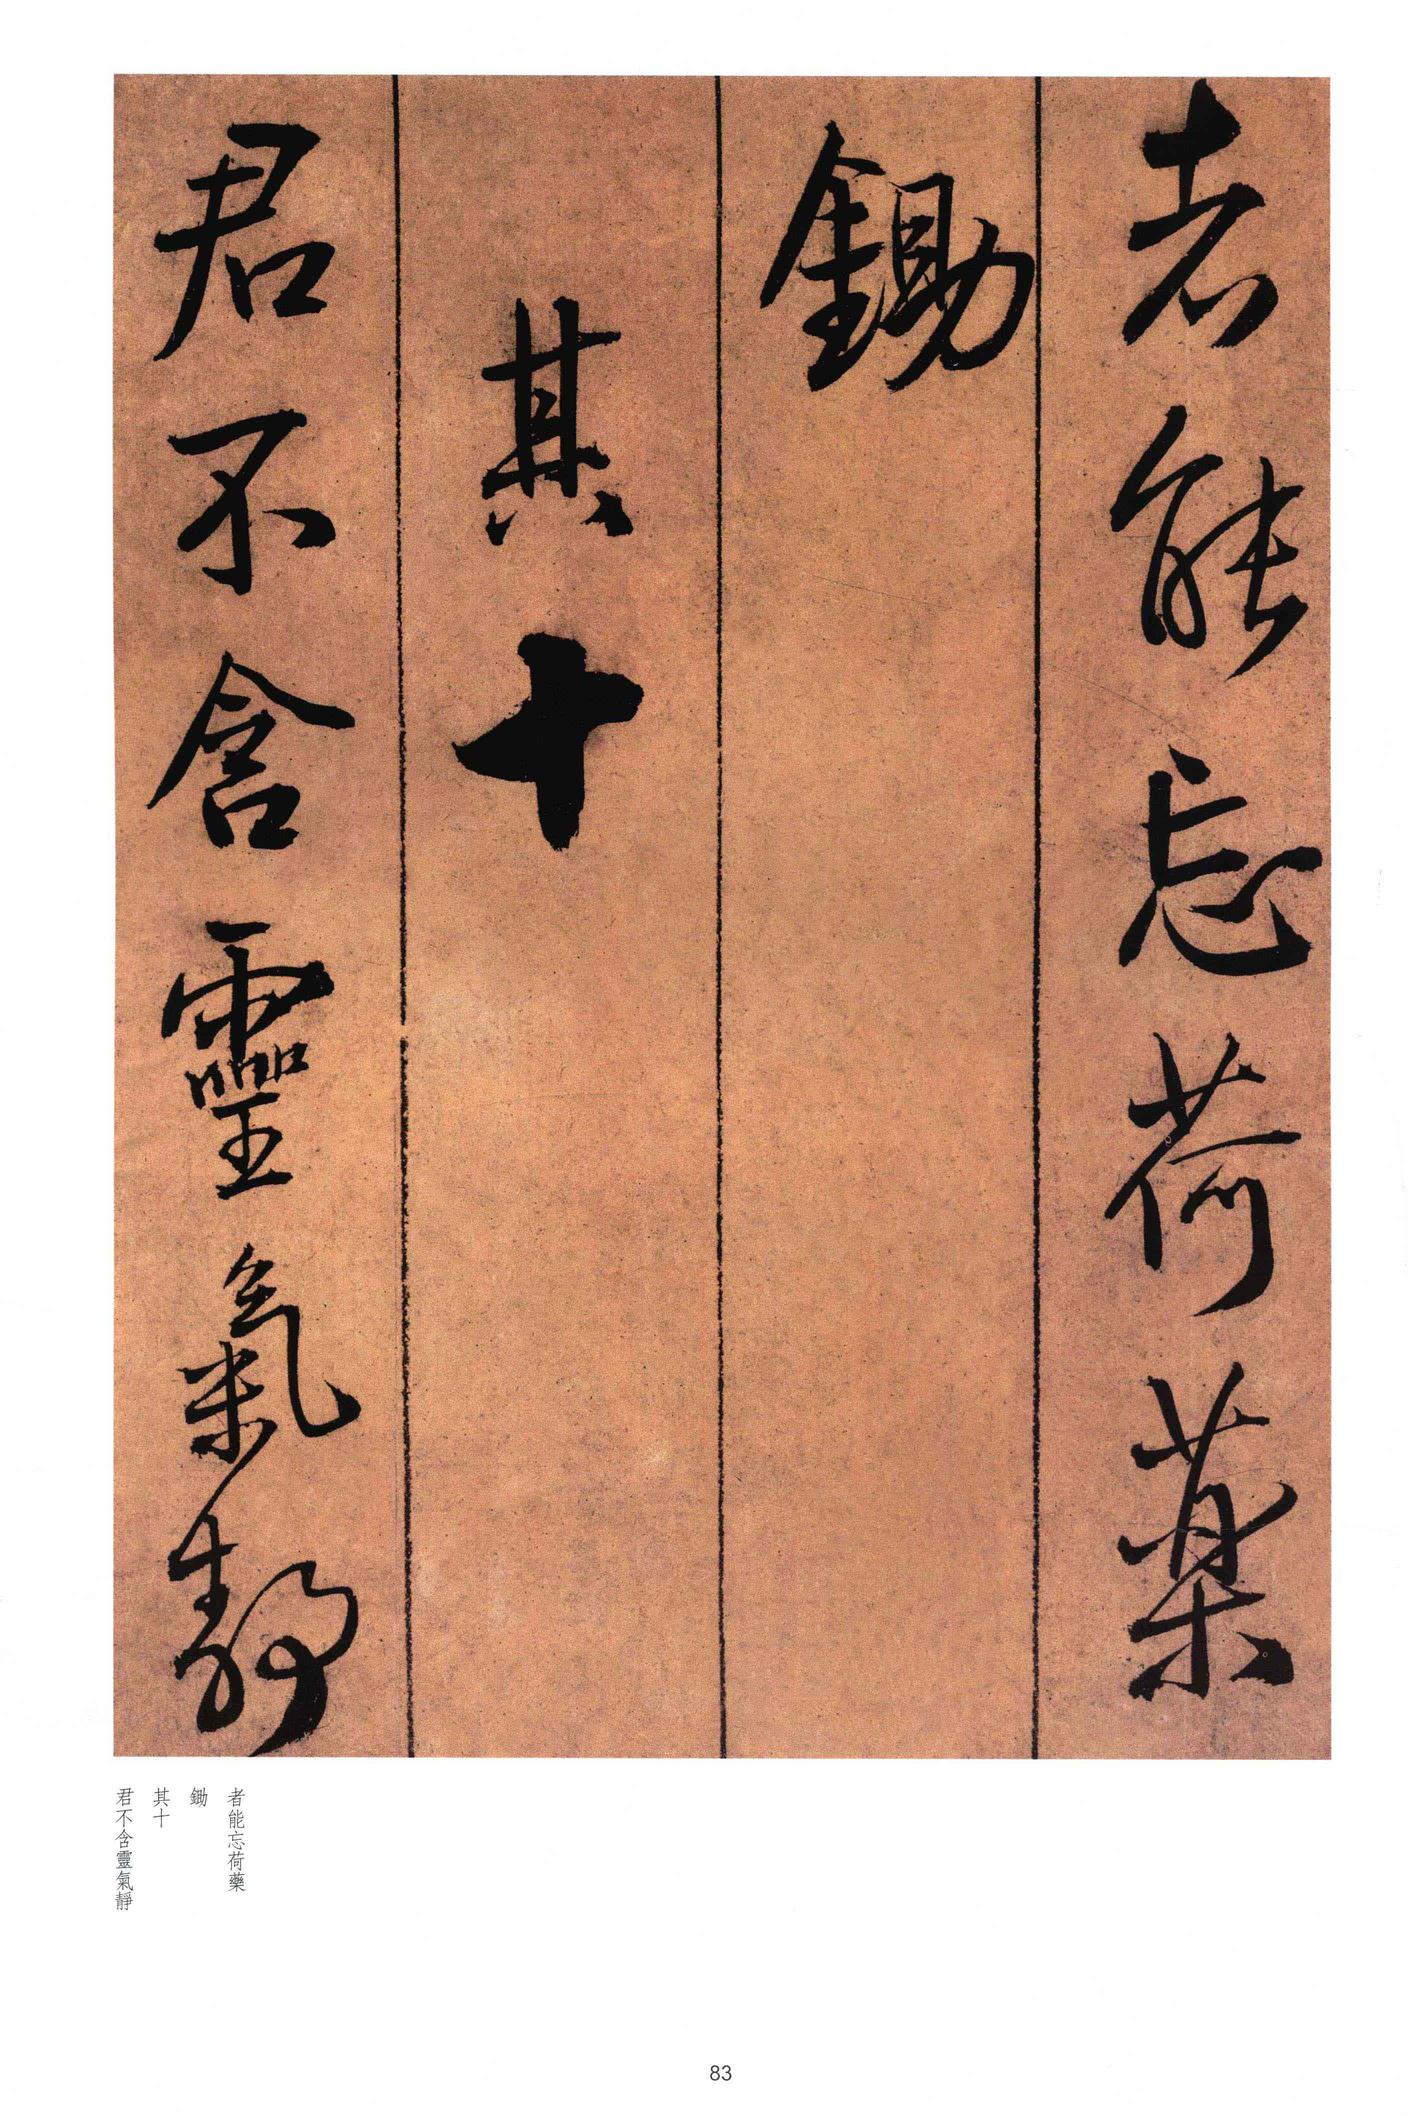 者能忘荷藥
鋤
其十
君不含靈氣靜
者能忘荷藥
鋤
其十
君不含靈氣靜
83